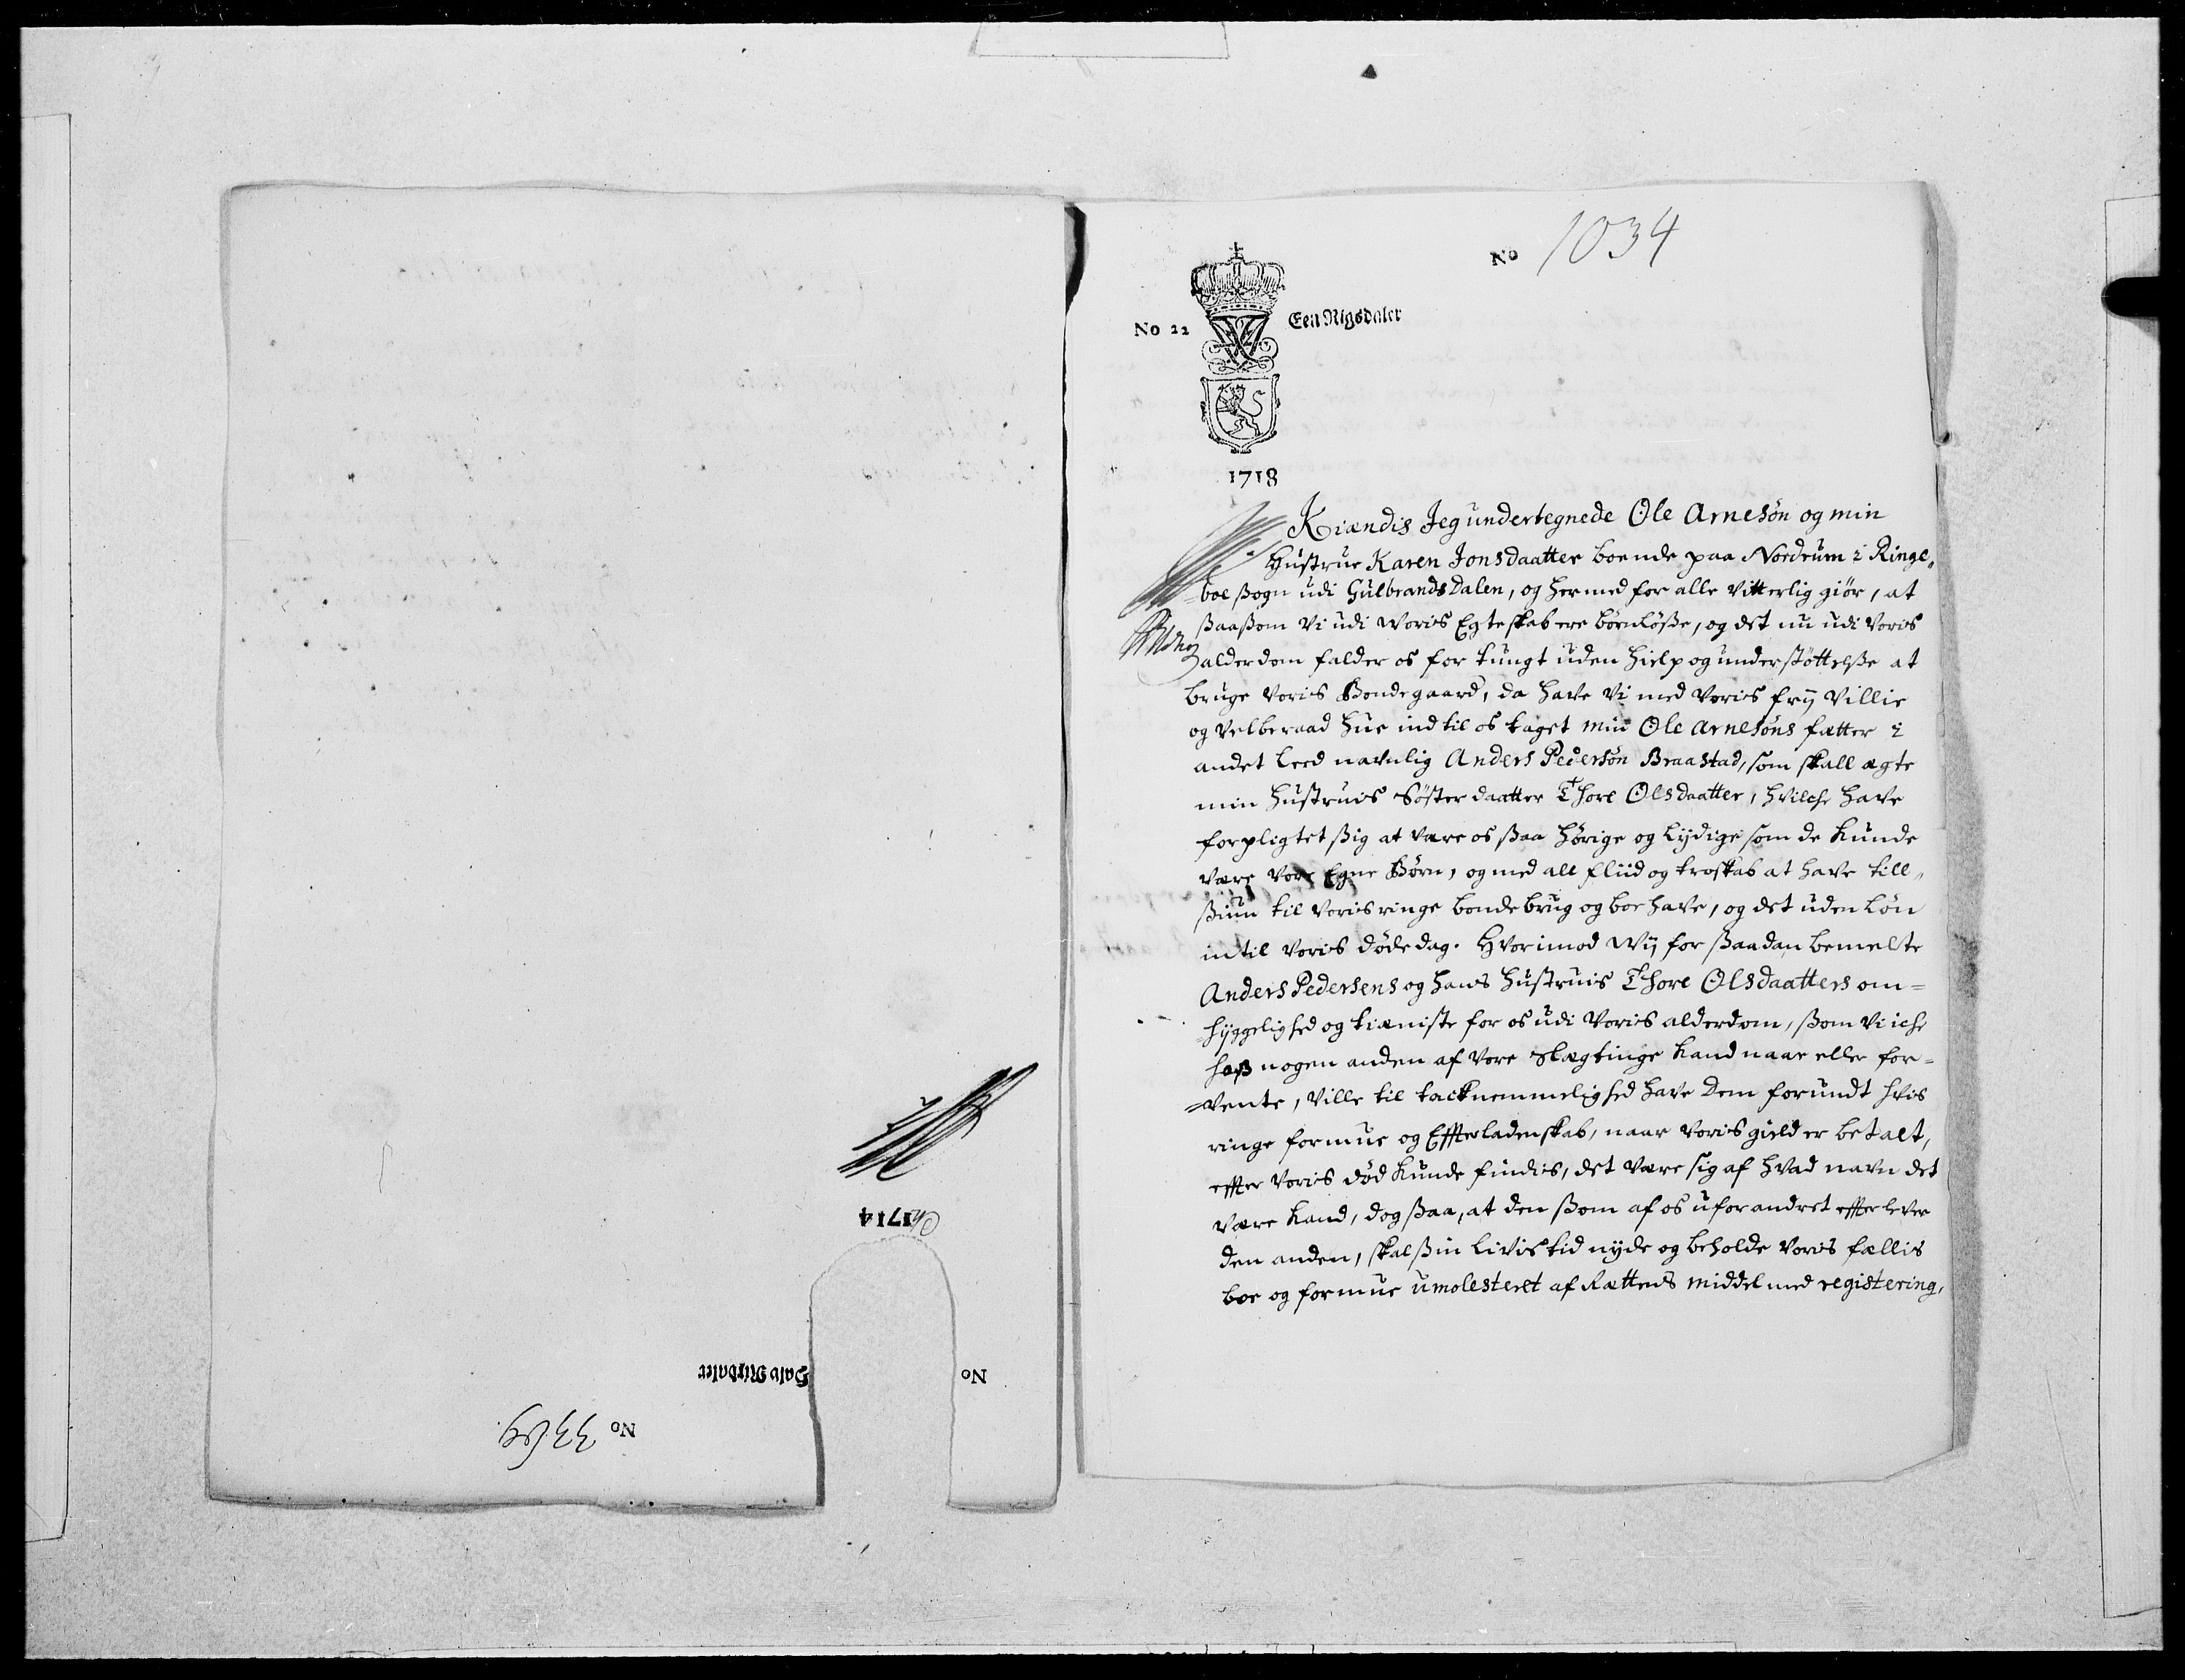 No 1034
No 22 Een Rigsdaler
1718
Kiændis Jeg undertegnede Ole Arnesøn og min
Hustrue Karen Jonsdaatter boende paa Nordrum i Ringe„
„boe ßogn udi Gulbrands Dalen, og hermed for alle vitterlig giør, at
ßaaßom Vi udi Woris Egteskab ere børnløße, og det nu udi Voris
alderdom falder os for tungt uden hielp og understøttelße at
bruge Voris Bondegaard, da have Vi med Voris frij Villie
og Velberaad hue ind til os taget min Ole Arnesøns fætter i
andet leed navnlig Anders Pedersøn Braastad, som skall ægte
min hustruis Søster daatter Thore Olsdaatter, hvilche have
forpligtet ßig at være os ßaa hørige og lydige som de kunde
være Vore Egne Børn, og med all fliid og troskab at have till„
ßiun til Voris ringe bonde brug og boe have, og det uden løn
intil Voris døde dag. Hvorimod Wij for ßaadan bemelte
Anders Pedersens og hans hustruis Thore Olsdaatters om=
=hyggelighed og tiæniste for os udi Voris alderdom, ßom Vi iche
haß nogen anden af Vore Slægtinge kand naae eller for=
=Vente, Ville til tacknemmelighed have Dem forundt hvis
ringe formue og Effterladenskab, naar Voris gield er betalt,
effter Voris død kunde findis, det være sig af hvad navn det
være kand, dog ßaa, at den ßom af os uforandret effterlever
den anden, skal ßin livis tid nyde og beholde Voris fællis
boe og formue umolesteret af Rættens middel med registering,
1714
Halv Rixdaler
No
No 33